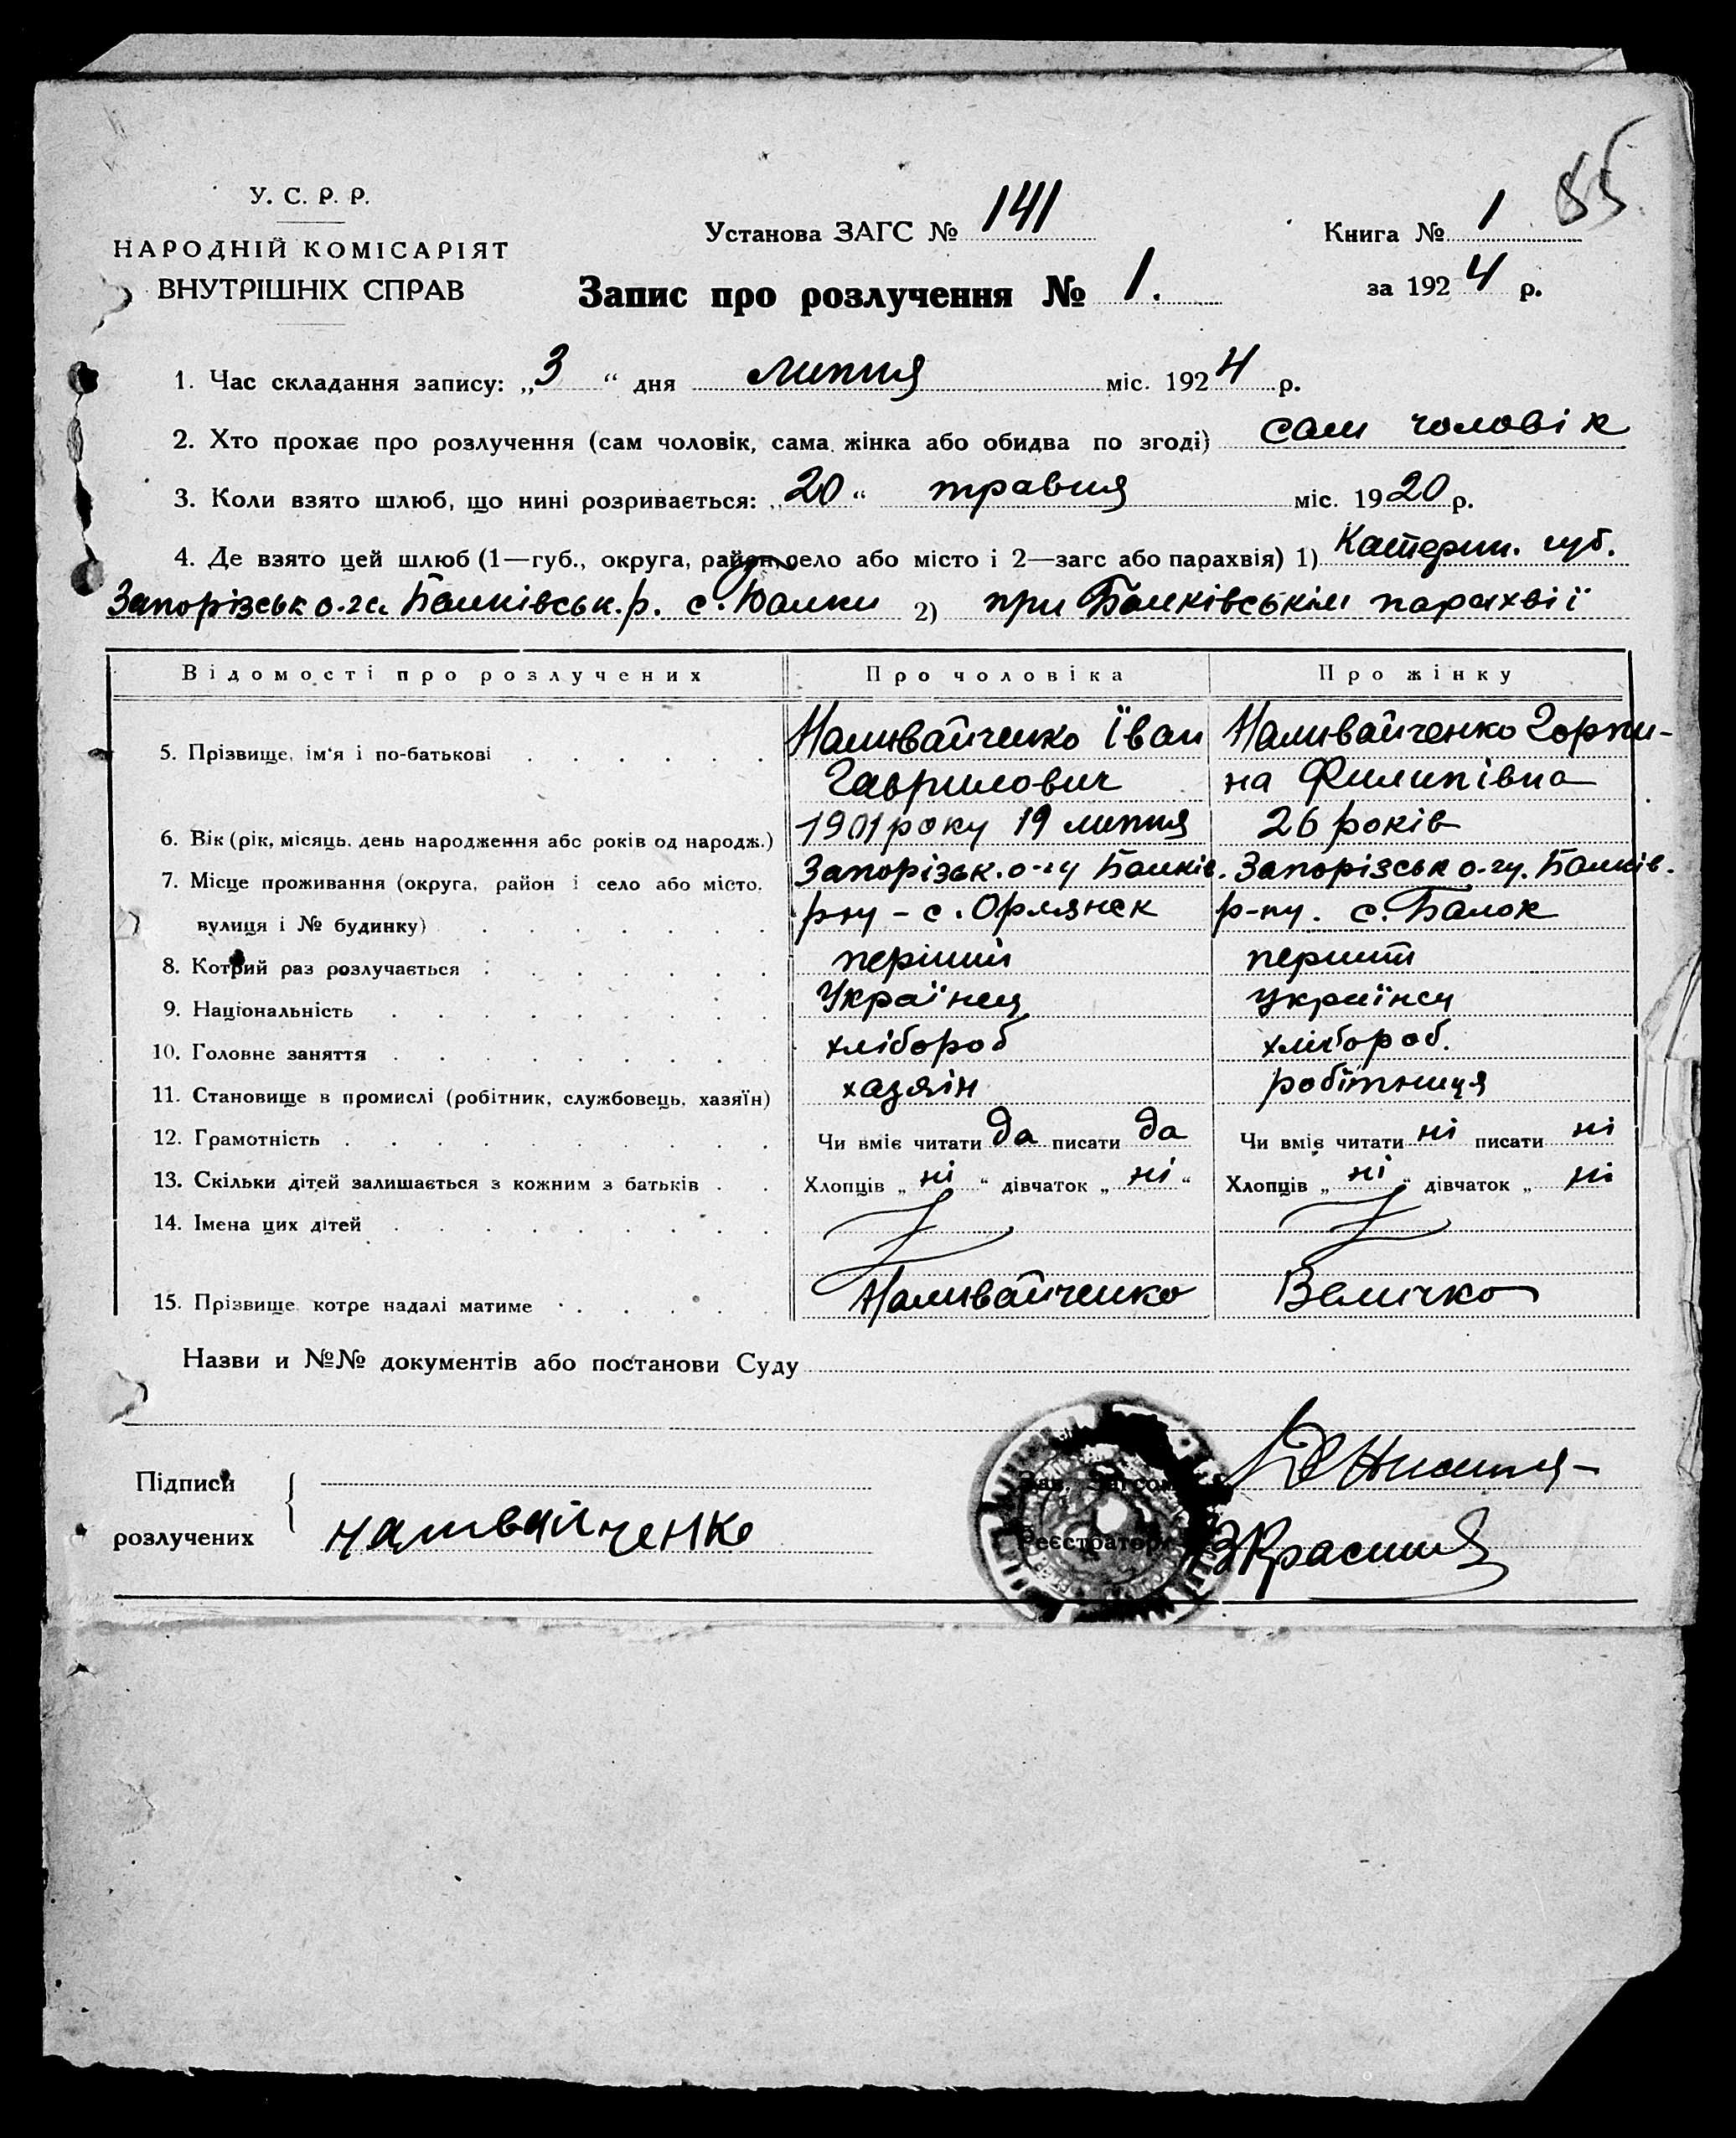 85
У. С. Р. Р.
НАРОДНІЙ КОМІСАРІЯТ
ВНУТРІШНІХ СПРАВ
Установа ЗАГС № 141
Книга № 1
Запис про розлучення № 1.
за 1924 р.
1. Час складання запису: „3“ дня липня міс. 1924 р.
2. Хто прохає про розлучення (сам чоловік, сама жінка або обидва по згоді) сам чоловік
3. Коли взято шлюб, що нині розривається: „20“ травня міс. 1920 р.
4. Де взято цей шлюб (1—губ., округа, район, село або місто і 2—загс або парахвія) 1) Катерин. губ.
Запорізськ о-га Балківськ. р. с. Балки 2) при Балківській парахвії
Відомості про розлучених Про чоловіка Про жінку
5. Прізвище, ім'я і по-батькові Наливайченко Іван Наливайченко Горпи-
Гаврилович на Филипівна
6. Вік (рік, місяць, день народження або років од народж.) 1901 року 19 липня 26 років
7. Місце проживання (округа, район і село або місто, Запорізьк. о-гу Балків. Запорізськ о-гу. Балків.
вулиця і № будинку) р-ну - с. Орлянск р-ну. с. Балок
8. Котрий раз розлучається перший перший
9. Національність Українец українец
10. Головне заняття хлібороб хлібороб.
11. Становище в промислі (робітник, службовець, хазяїн) хазяін робітниця
12. Грамотність Чи вміє читати да писати да Чи вміє читати ні писати ні
13. Скільки дітей залишається з кожним з батьків Хлопців „ ні “ дівчаток „ ні “ Хлопців „ ні “ дівчаток „ ні
14. Імена цих дітей
15. Прізвище котре надалі матиме Наливайченко Величко
Назви и №№ документів або постанови Суду
Підписи
розлучених
Наливайченко
Зав. Загсом
Реєстратор